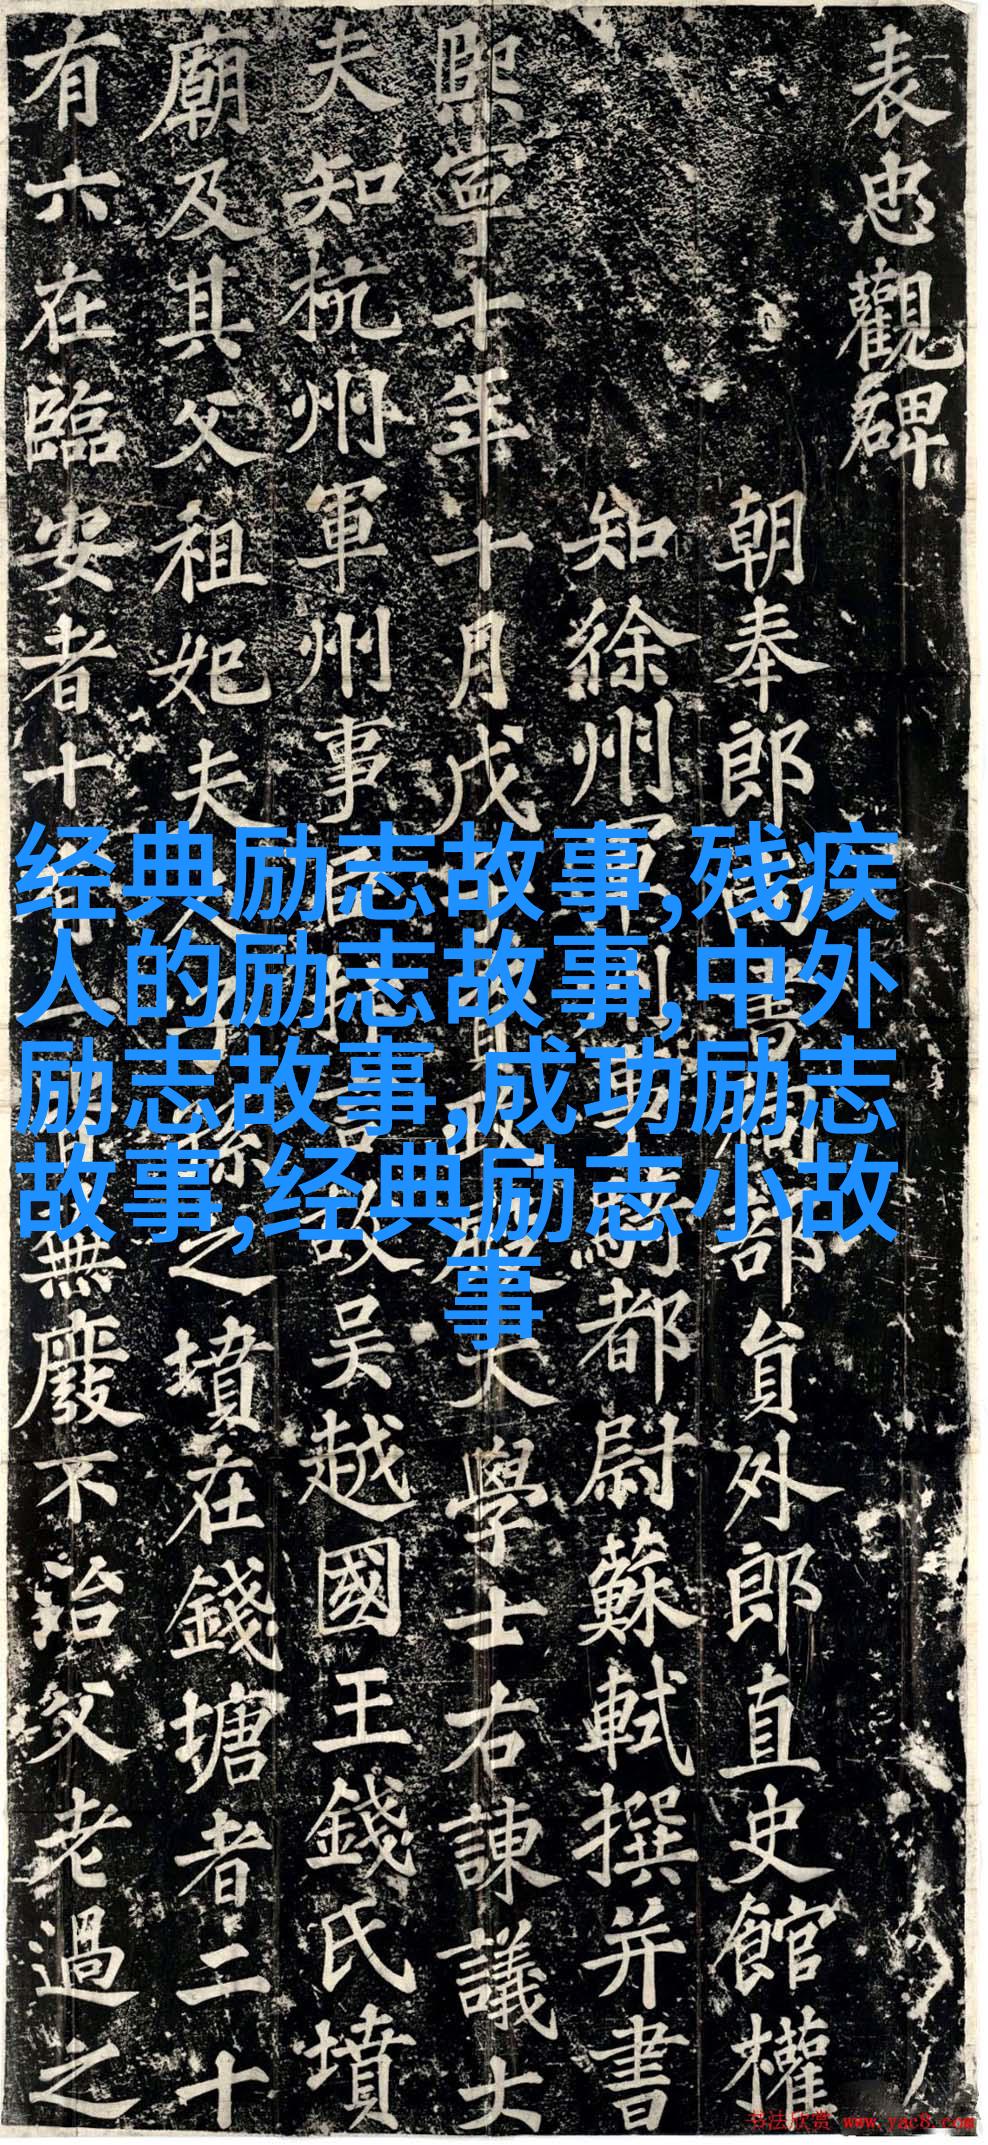 表忠觀碑
朝奉郎尚書祠部員外郎直史館權
知徐州軍州事騎都尉蘇軾撰并書
熙寧十年十月戊子資政殿大學士右諫議大
夫知杭州軍州事臣抃言故吴越國王錢氏墳
廟及其父祖妃夫人子孫之墳在錢塘者二十
有六在臨安者十有一皆蕪廢不治父老過之
经典励志故事,残疾
人的励志故事,中外
励志故事,成功励志
故事,经典励志小故
事
书法欣赏 www.yac8.com